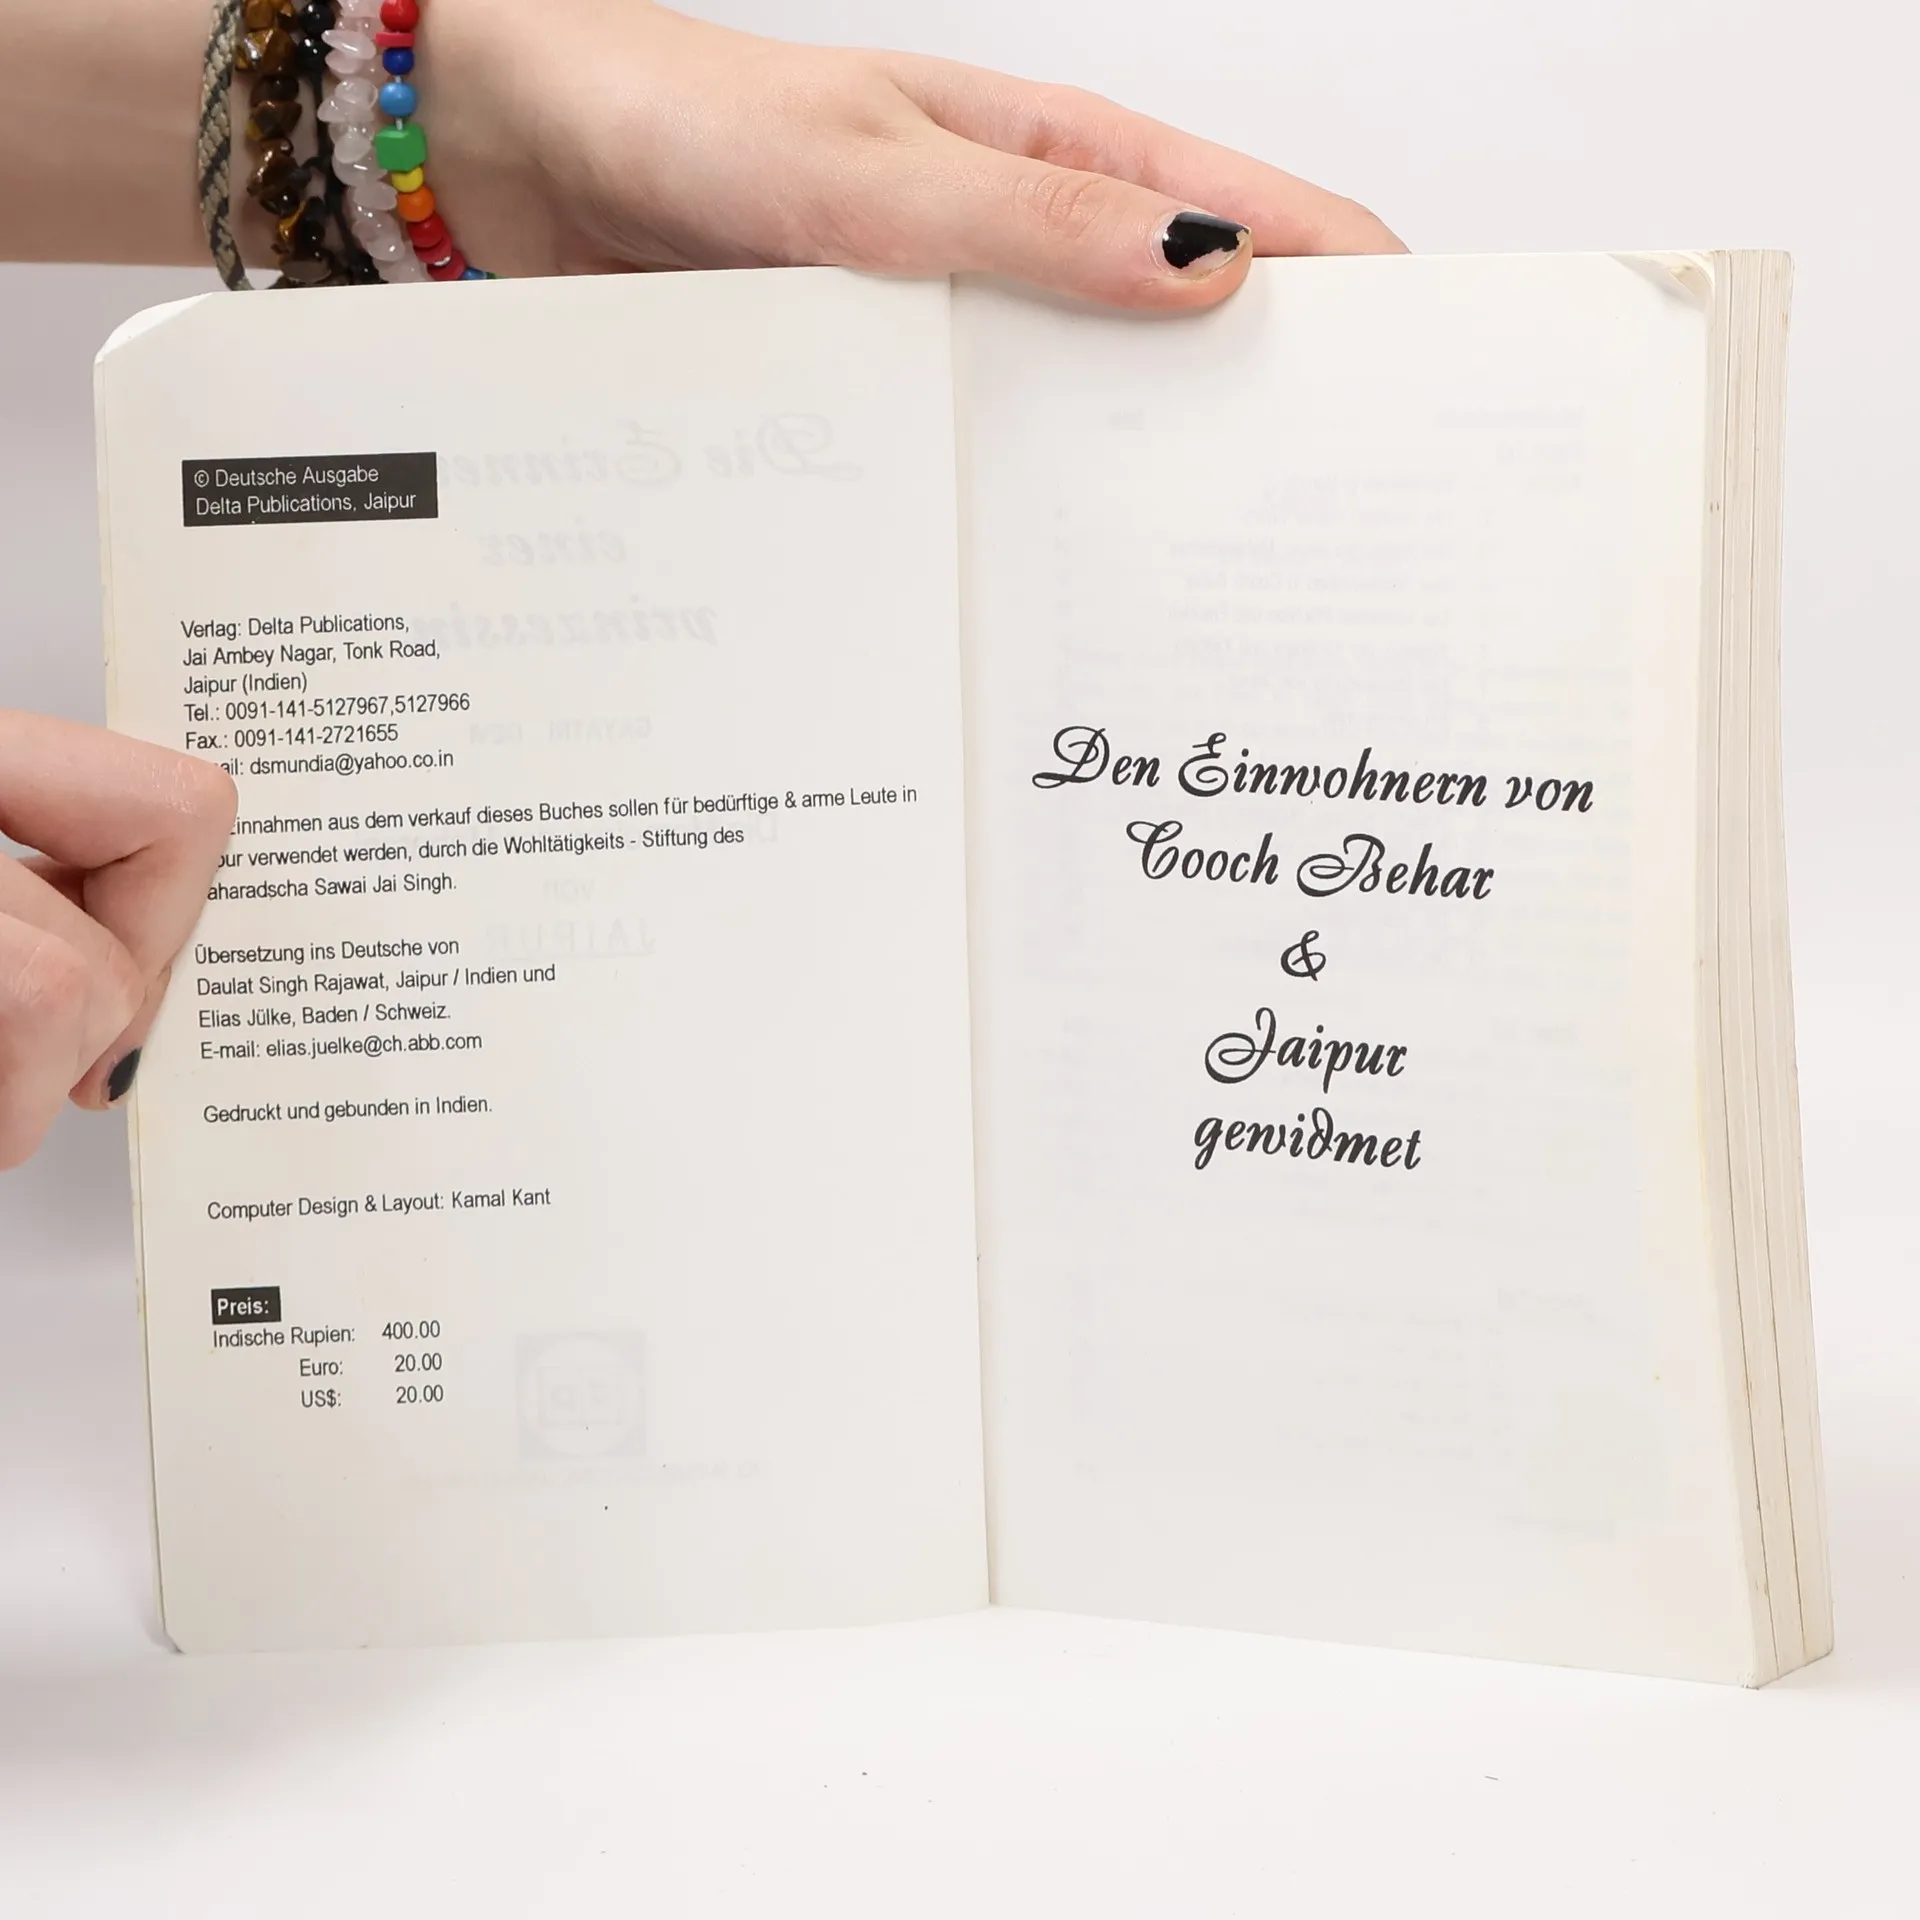 © Deutsche Ausgabe
Delta Publications, Jaipur
Verlag: Delta Publications,
Jai Ambey Nagar, Tonk Road,
Jaipur (Indien)
Tel.: 0091-141-5127967,5127966
Fax.: 0091-141-2721655
dsmundia@yahoo.co.in
aus dem verkauf dieses Buches sollen für bedürftige & arme Leute in
verwendet werden, durch die Wohltätigkeits - Stiftung des
Sawai Jai Singh.
Übersetzung ins Deutsche von
Daulat Singh Rajawat, Jaipur / Indien und
Elias Jülke, Baden / Schweiz.
E-mail: elias.juelke@ch.abb.com
Gedruckt und gebunden in Indien.
Computer Design & Layout: Kamal Kant
Preis:
Indische Rupien: 400.00
Euro: 20.00
US$: 20.00
Den Einwohnern von
Cooch Behar
&
Jaipur
gewidmet